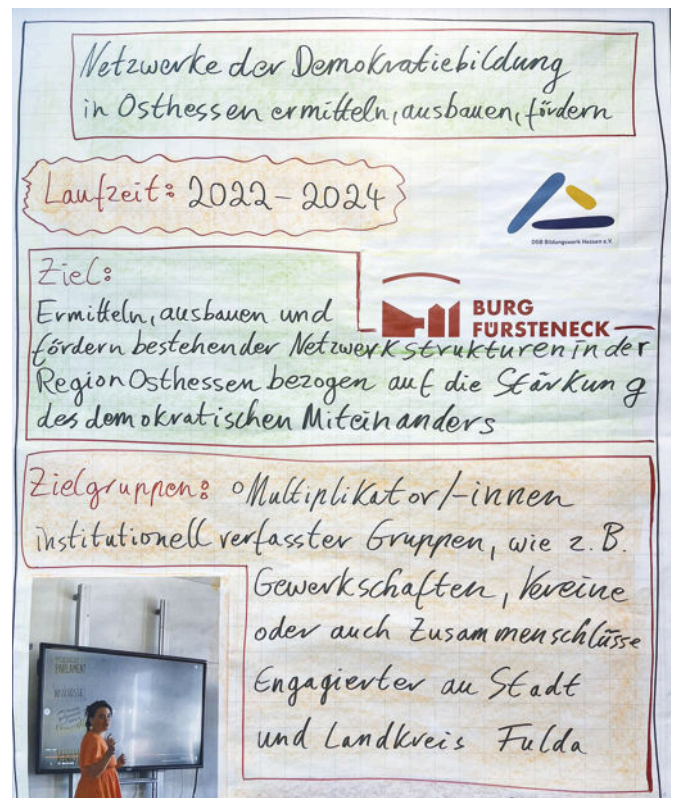 Netzwerke der Demokratiebildung
in Osthessen ermitteln, ausbauen, fördern
Laufzeit: 2022-2024
DGB Bildungswerk Hessen e.V.
Ziel:
BURG
FÜRSTENECK
Ermitteln, ausbauen und
fördern bestehender Netzwerkstrukturen in der
Region Osthessen bezogen auf die Stärkung
des demokratischen Miteinanders
Zielgruppen: Multiplikator/-innen
institutionell verfasster Gruppen, wie z.B.
Gewerkschaften, Vereine
oder auch Zusammenschlüsse
Engagierter au Stadt
und Landkreis Fulda
PARLAMENT